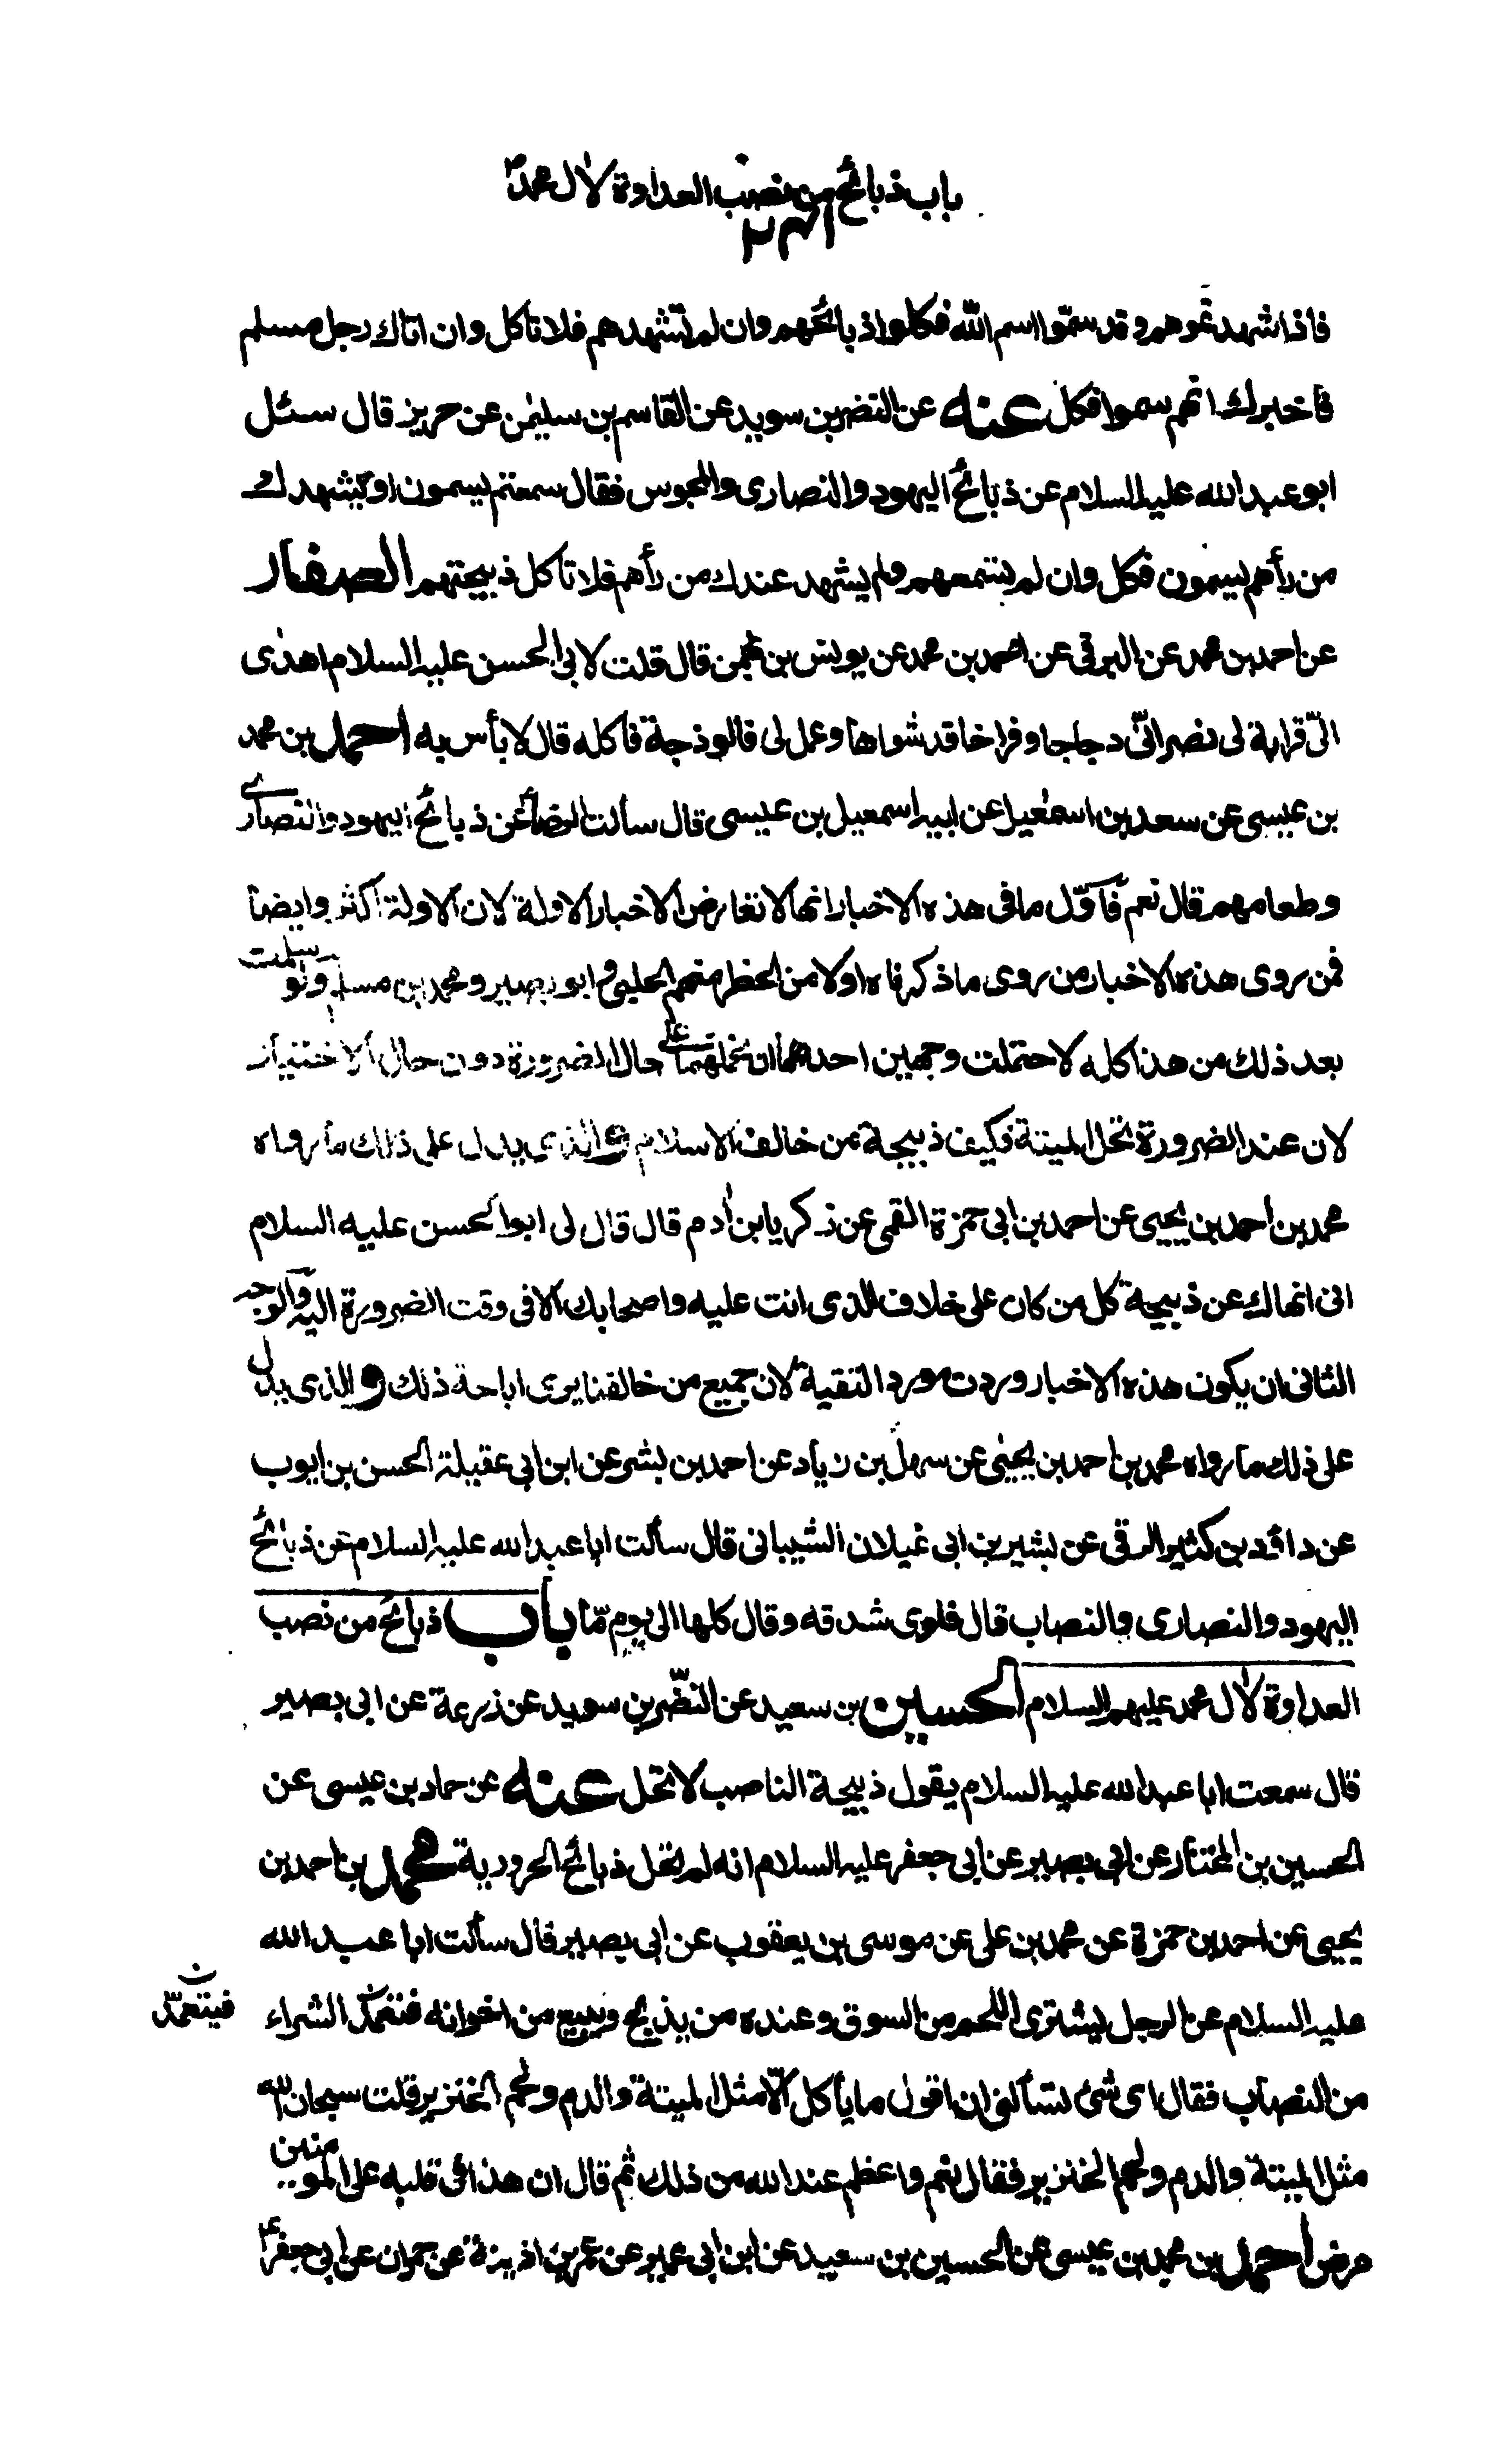 باب ذبائح من نصب العداوة لال محمدؐ
٢٣١
فاذا شهد تموهم وقد سمّوا اسم الله فكلوا ذبائحهم وان لم تشهدهم فلا تاكل وان اتاك رجل مسلم
فاخبرك انهم سموا فكل عنه عن النضر بن سويد عن القاسم بن سليمٰن عن حريز قال سئل
ابو عبد الله عليه السلام عن ذبائح اليهود والنصارى والمجوس فقال سمعتم يسمون او يشهد لك
من رأهم يسمون فكل وان لم تسمعهم ولم يشهد عندك من رأهم فلا تاكل ذبيحتهم الصفار
عن احمد بن محمد عن البرقى عن احمد بن محمد عن يونس بن بهمن قال قلت لابى الحسن عليه السلام اهدٰى
الىّ قرابة لى نصرانىّ دجاجا وفراخا قد شواها وعمل لى فالوذجة فاكله قال لا بأس به احمد بن محمد
بن عيسى عن سعد بن اسمٰعيل عن ابيه اسمعيل بن عيسى قال سألت الرضاؑ عن ذبائح اليهود والنصارى
وطعامهم قال نعم فاوّل ما فى هذه الاخبار انها لا تعارض الاخبار الاولة لان الاولة اكثر وايضا
فمن روى هذه الاخبار من روى ما ذكرناه اولا من الحظر منهم الحلبى وابو بصير ومحمد بن مسلم ولو سلمت
بعد ذلك من هذا كله لاحتملت وجهين احدهما ان نحملها على حال الضرورة دون حال الاختيار
لان عند الضرورة تحل الميتة فكيف ذبيحة من خالف الاسلام والذى يدل على ذلك ما رواه
محمد بن احمد بن يحيى عن احمد بن ابى حمزة القمى عن زكريا بن ادم قال قال لى ابو الحسن عليه السلام
انى انهاك عن ذبيحة كل من كان على خلاف الذى انت عليه واصحابك الا فى وقت الضرورة اليه والوجه
الثانى ان يكون هذه الاخبار وردت مورد التقية لان جميع من خالفنا يرى اباحة ذلك والذى يدل
على ذلك ما رواه محمد بن احمد بن يحيٰى عن سهل بن زياد عن احمد بن بشر عن ابن ابى عقيلة الحسن بن ايوب
عن داؤد بن كثير الرقى عن بشير بن ابى غيلان الشيبانى قال سألت ابا عبد الله عليه السلام عن ذبائح
اليهود والنصارى والنصاب قال فلوى شدقه وقال كلها الى يوم مّا باب ذبائح من نصب
العداوة لال محمد عليهم السلام الحسين بن سعيد عن النضر بن سويد عن زرعة عن ابى بصير
قال سمعت ابا عبد الله عليه السلام يقول ذبيحة الناصب لا تحل عنه عن حماد بن عيسى عن
الحسين بن المختار عن ابى بصير عن ابى جعفر عليه السلام انه لم تحل ذبائح الحرورية محمد بن احمد بن
يحيى عن احمد بن حمزة عن محمد بن على عن موسى بن يعقوب عن ابى بصير قال سألت ابا عبد الله
عليه السلام عن الرجل يشترى اللحم من السوق وعنده من يذبح ويبيع من اخوانه فتعمد الشراء
فيتعمّد ن
من النصاب فقال اى شئ تسألنى ان اقول ما يأكل الّا مثل الميتة والدم ولحم الخنزير قلت سبحان الله
مثل الميتة والدم ولحم الخنزير فقال نعم واعظم عند الله من ذلك ثم قال ان هذا فى قلبه على المومنين
مرض احمد بن محمد بن عيسى عن الحسين بن سعيد عن ابن ابى عمير عن عمر بن اذينة عن حمران عن ابى جعفرؑ